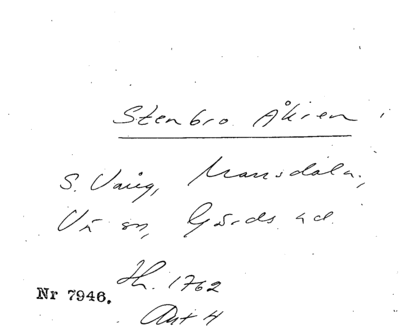 Stenbro Åkren
S. Vång, Mansdala,
Vä sn, Gärds hd.
Jh. 1762
Akt 4
Nr 7946.